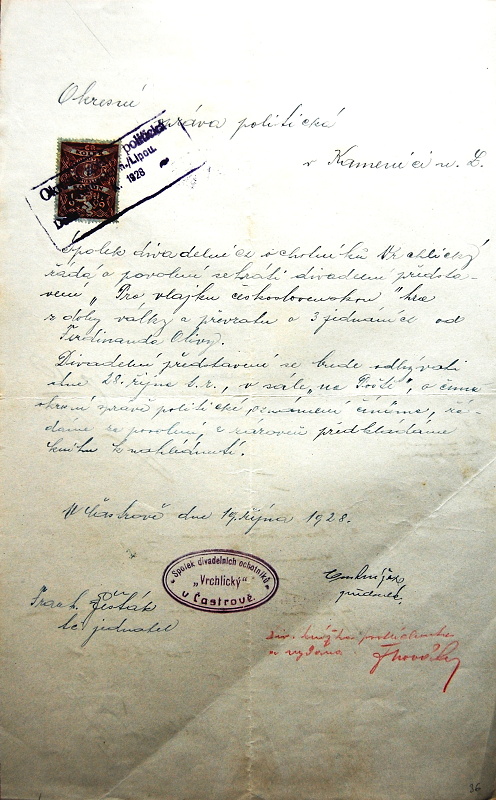 Okresní
správa politická
v Kamenici n. L.
Okr politická
n./Lipou.
1928
Spolek divadelních ochotníků Vrchlický
žádá o povolení sehráti divadelní předsta-
vení „Pro vlajku československou" hra
z doby války a převratu o 3 jednáních od
Ferdinanda Olivy.
Divadelní představení se bude odbývati
dne 28. října t.r., v sále „na Poště", o čemž
okresní správě politické oznámení činíme, žá-
dáme za povolení a zároveň předkládáme
knihu k nahlédnutí.
V Častrově dne 19. října 1928.
Spolek divadelních ochotníků
„Vrchlický"
v Častrově.
Frant. Šesták
t.č. jednatel
předseda.
Div. knížka
a vydána
36